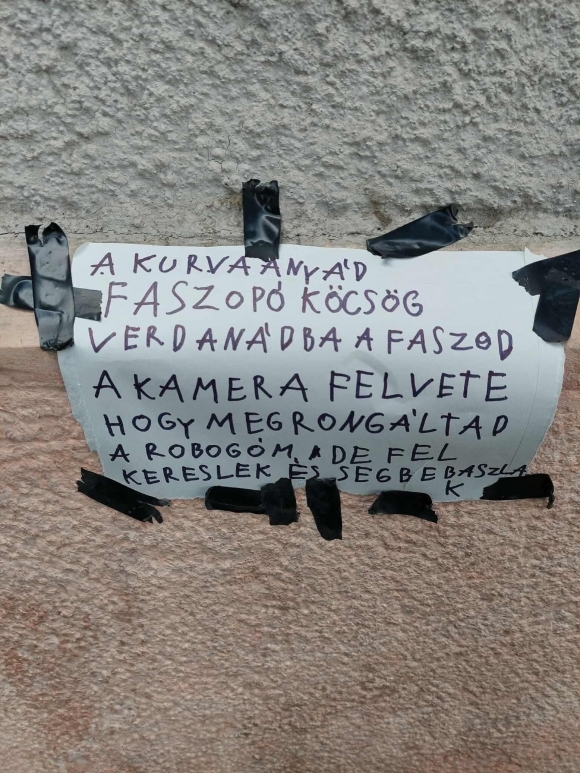 A KURVAANYÁD
FASZOPÓ KÖCSÖG
VERDANÁDBA A FASZOD
A KAMERA FELVETE
HOGY MEGRONGÁLTAD
A ROBOGÓM, DE FEL
KERESLEK ÉS SEGBEBASZLA
K